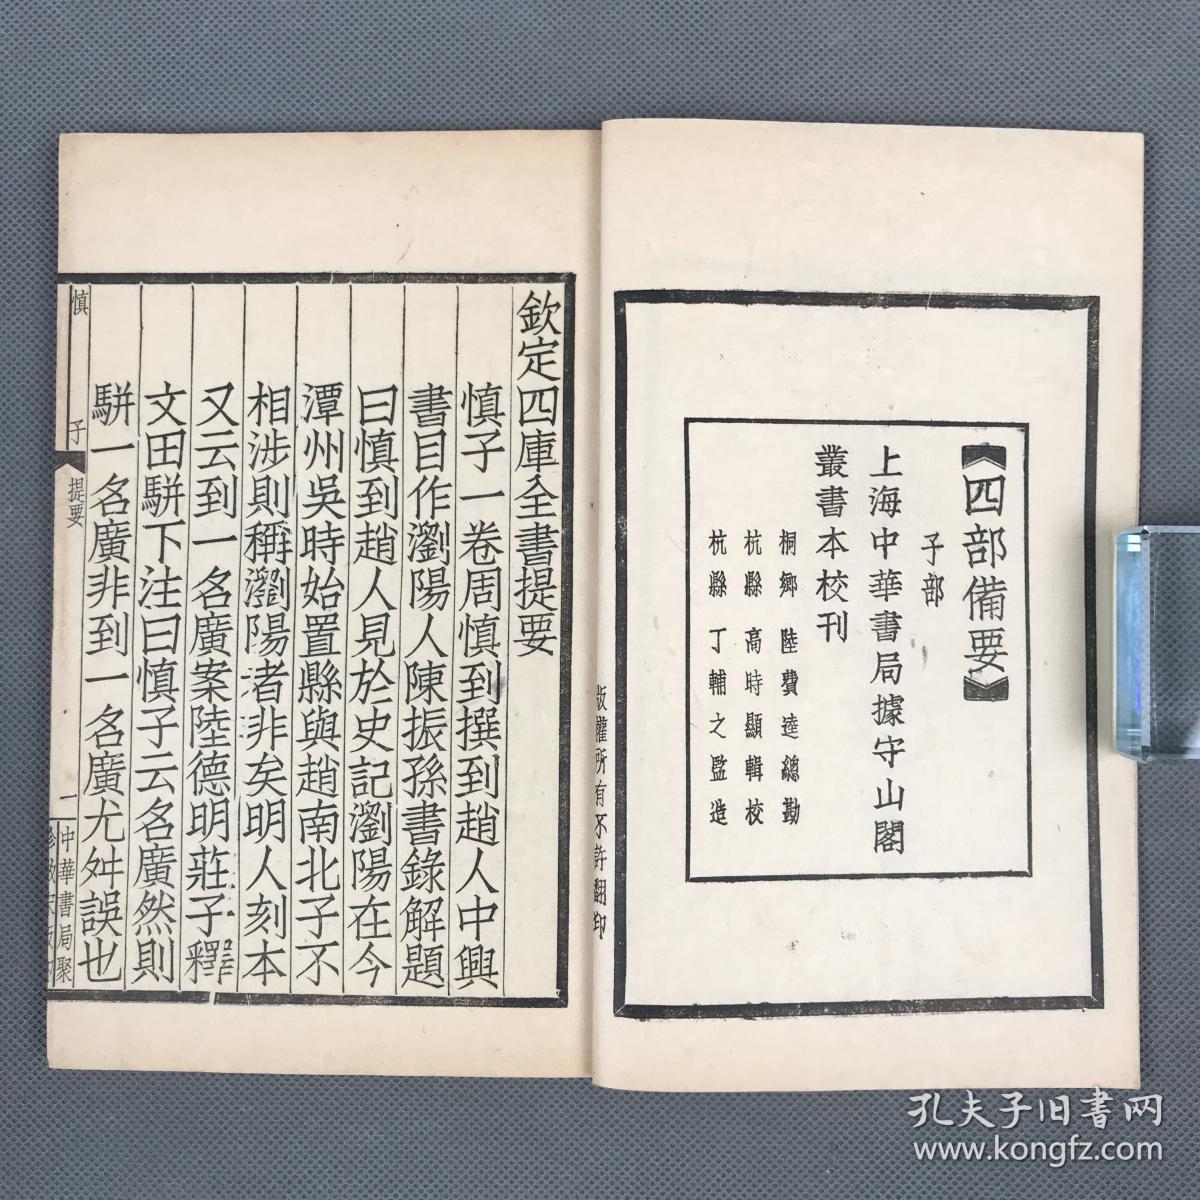 【四部備要】
子部
上海中華書局據守山閣
叢書本校刊
桐鄉 陸費逵總勘
杭縣 高時顯輯校
杭縣 丁輔之監造
版權所有不許翻印
欽定四庫全書提要
慎子一卷周慎到撰到趙人中興
書目作瀏陽人陳振孫書錄解題
曰慎到趙人見於史記瀏陽在今
潭州吳時始置縣與趙南北子不
相涉則稱瀏陽者非矣明人刻本
又云到一名廣案陸德明莊子釋
文田駢下注曰慎子云名廣然則
駢一名廣非到一名廣尤舛誤也
慎子 提要 一 中華書局聚
孔夫子旧书网
www.kongfz.com